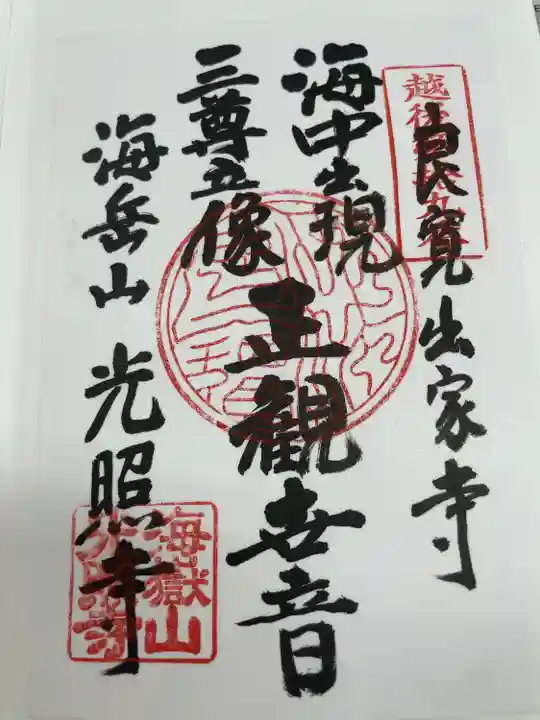 良寛出家寺
海中出現
三尊立像
正観世音
海岳山 光照寺
海嶽山
光照寺